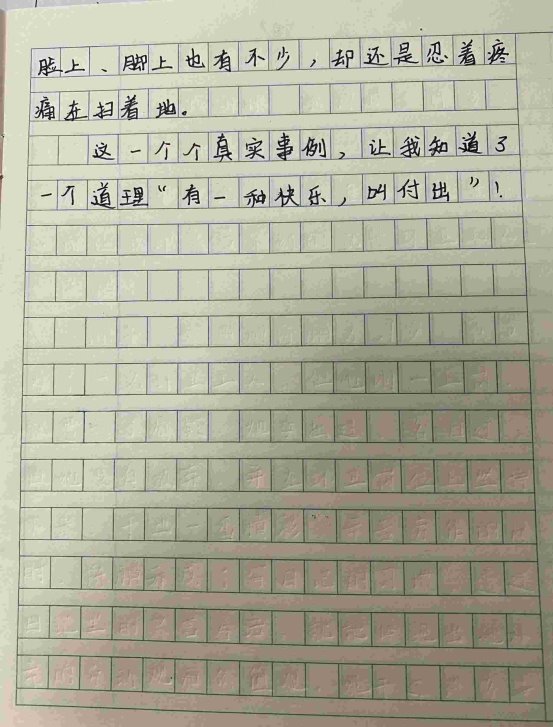 脸上、脚上也有不少，却还是忍着疼
痛在扫着地。
这一个个真实事例，让我知道了
一个道理“有一种快乐，叫付出”！